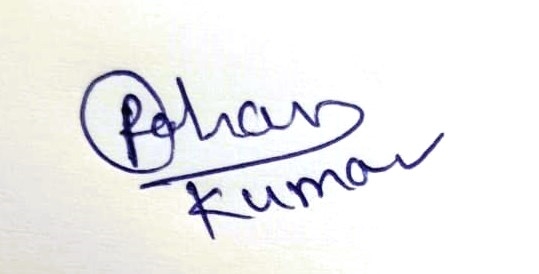 Rohan
Kumar